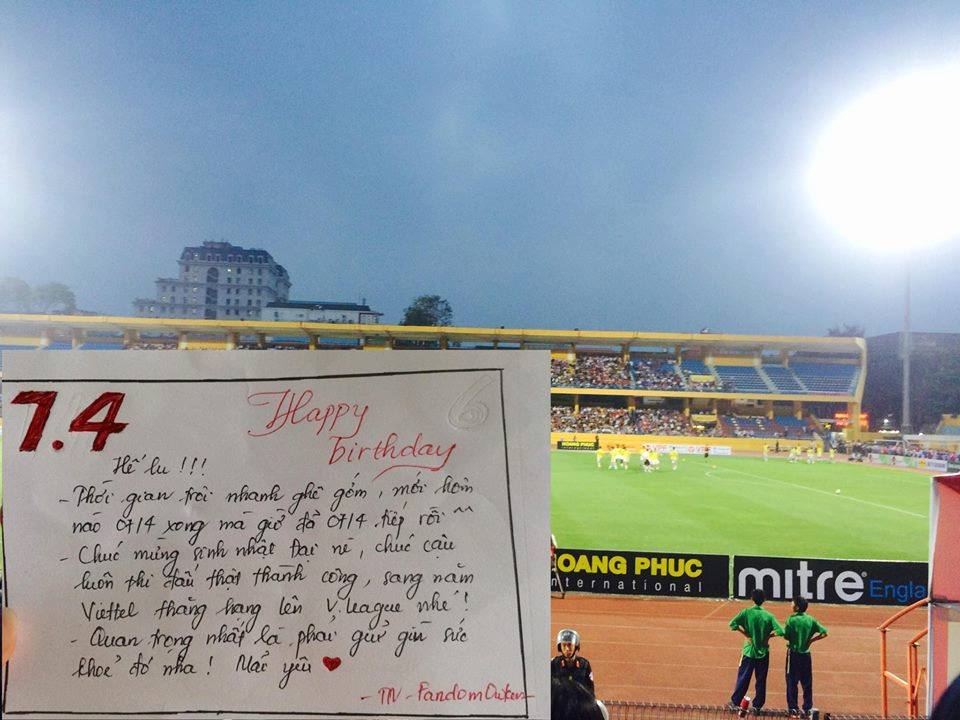 7.4
Happy
birthday
6
Hế lu !!!
- Thời gian trôi nhanh ghê gớm, mới hôm
nào 07/4 xong mà giờ đã 07/4 tiếp rồi ^^
- Chúc mừng sinh nhật Đại nè, chúc cậu
luôn thi đấu thật thành công, sang năm
Viettel thăng hạng lên V.league nhé!
- Quan trọng nhất là phải giữ gìn sức
khoẻ đó nha! Mãi yêu
- TN - Fandom
HOANG PHUC
OANG PHUC
International
mitre
Engla